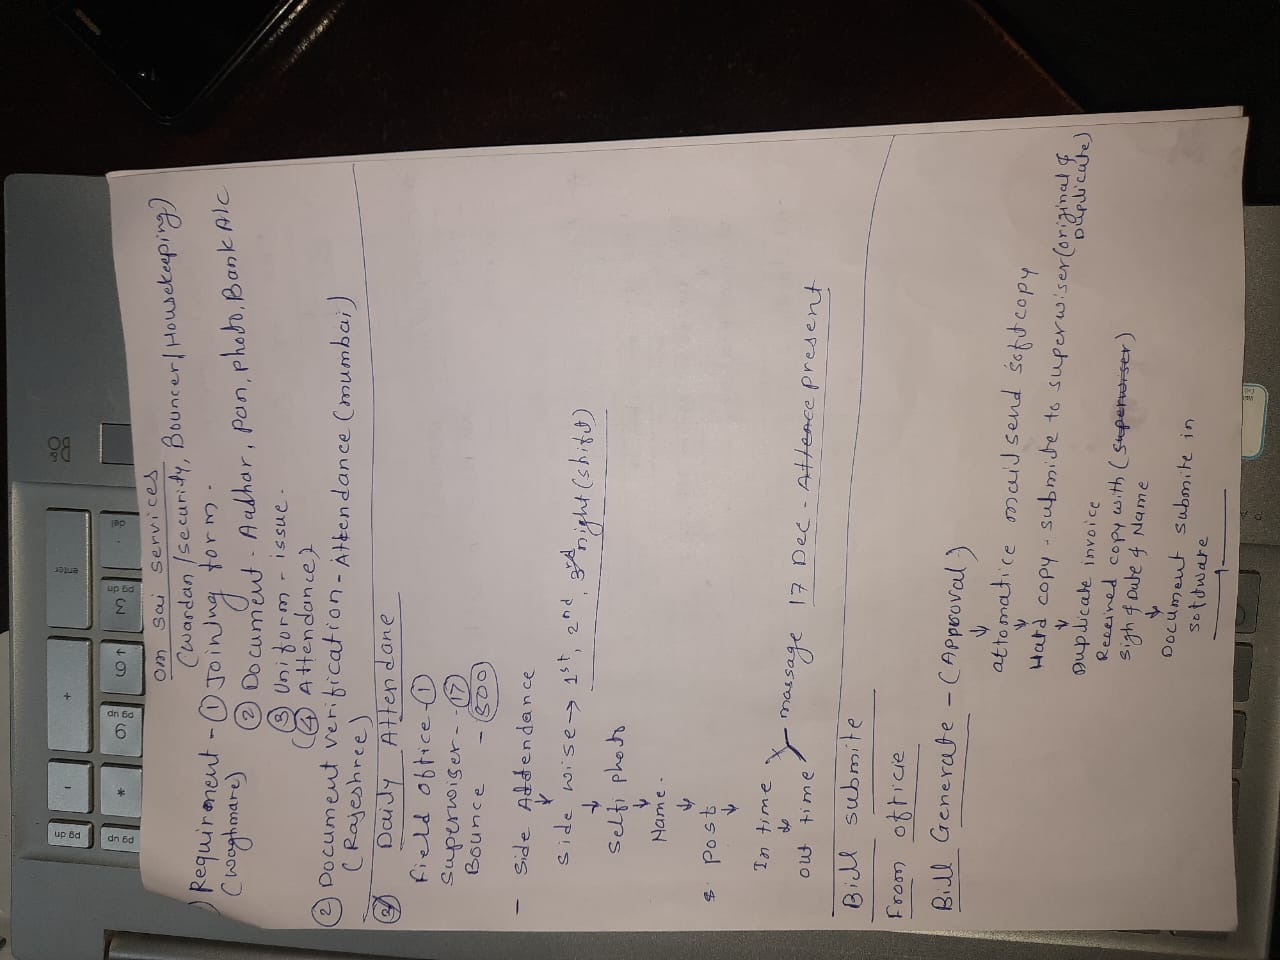 pg dn
-
+
enter
pg up
*
9
pg up
6
3
pg dn
.
del
B&O
Om Sai Services
(Wardan / Security, Bouncer / Housekeeping)
1) Requirement - ① Joining form.
(Waghmare)
② Document - Aadhar, pan, photo, Bank A/c
③ Uniform - issue.
(④ Attendance)
② Document verification - Attendance (mumbai)
(Rajeshree)
③ Daily Attendane
field office - ①
Superwiser - - ⑰
Bounce - 300
- Side Attendance
↓
Side wise → 1st, 2nd, 3rd night (shift)
↓
Selfi photo
↓
Name.
↓
post
↓
In time
↓
out time
massage 17 Dec - Attence present
Bill submite
From officie
Bill Generate - (Approval)
↓
attomatice mail send softcopy
↓
Hard copy - submite to superwiser (original & Duplicate)
↓
Duplicate invoice
Received copy with (superwiser)
Sigh & Date & Name
↓
Document submite in
software